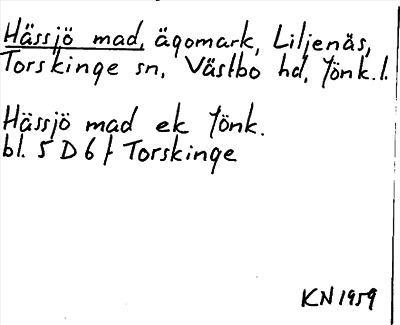 Hässjö mad, ägomark, Liljenäs,
Torskinge sn, Västbo hd, Jönk. l.
Hässjö mad ek Jönk.
bl. 5 D 6 f Torskinge
KN 1959